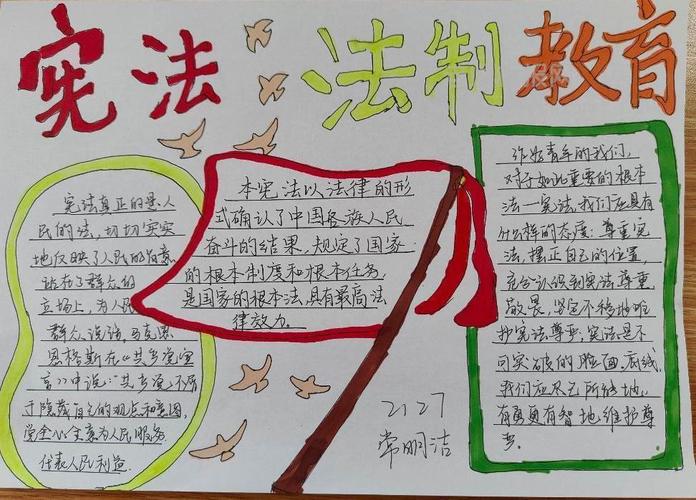 宪法 法制教育
宪法真正的是人
民的法,切切实实
地反映了人民的意愿
站在了群众的
立场上,为人民
群众说话,马克思
恩格斯在《共产党宣
言》中说:"共产党不屑
于隐藏自己的观点和意图,
党全心全意为人民服务
代表人民利益
本宪法以法律的形
式确认了中国各族人民
奋斗的结果,规定了国家
的根本制度和根本任务
是国家的根本法,具有最高法
律效力.
作为青年的我们,
对于如此重要的根本
法一宪法,我们应具有
什么样的态度:尊重宪
法,摆正自己的位置,
充分认识到宪法尊重
敬畏,坚定不移地维
护宪法尊严,宪法是不
可突破的脸面,底线
我们应尽己所能地,
有勇更有智地维护尊
严.
2127
常明洁